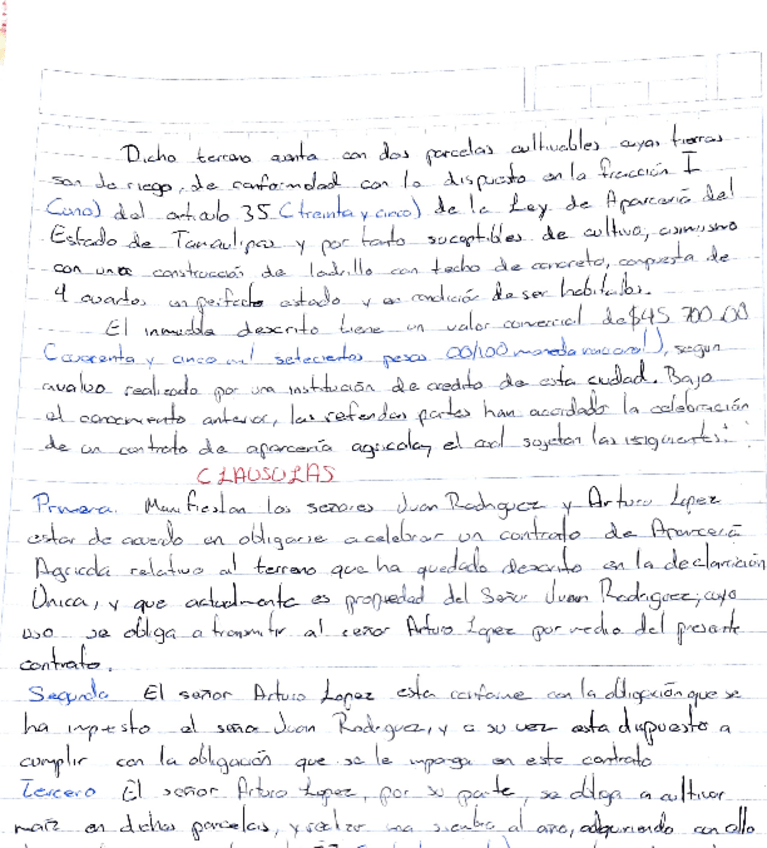 Dicho terreno cuenta con dos parcelas cultivables cuyas tierras
son de riego, de conformidad con lo dispuesto en la fracción I
(uno) del articulo 35 (treinta y cinco) de la Ley de Aparcería del
Estado de Tamaulipas y por tanto suceptibles de cultivo, asimismo
con una construcción de ladrillo con techo de concreto, compuesta de
4 cuartos en perfecto estado y en condición de ser habitables.
El inmueble descrito tiene un valor comercial de $45 700.00
(cuarenta y cinco mil setecientos pesos 00/100 moneda nacional), segun
avaluo realizado por una institución de credito de esta ciudad. Bajo
el conocimiento anterior, las referidas partes han acordado la celebración
de un contrato de aparcería agricola, el cual sujetan las siguientes:
CLAUSULAS
Primera. Manifiestan los señores Juan Rodriguez y Arturo Lopez
estar de acuerdo en obligarse a celebrar un contrato de Aparcería
Agricola relativo al terreno que ha quedado descrito en la declaración
Única, y que actualmente es propiedad del Señor Juan Rodriguez; cuyo
uso se obliga a transmitir al señor Arturo Lopez por medio del presente
contrato.
Segunda El señor Arturo Lopez esta conforme con la obligación que se
ha impuesto el señor Juan Rodriguez, y a su vez esta dispuesto a
cumplir con la obligación que se le imponga en este contrato
Tercero El señor Arturo Lopez, por su parte, se obliga a cultivar
maíz en dichas parcelas, y realizar una siembra al año, adquiriendo con ello